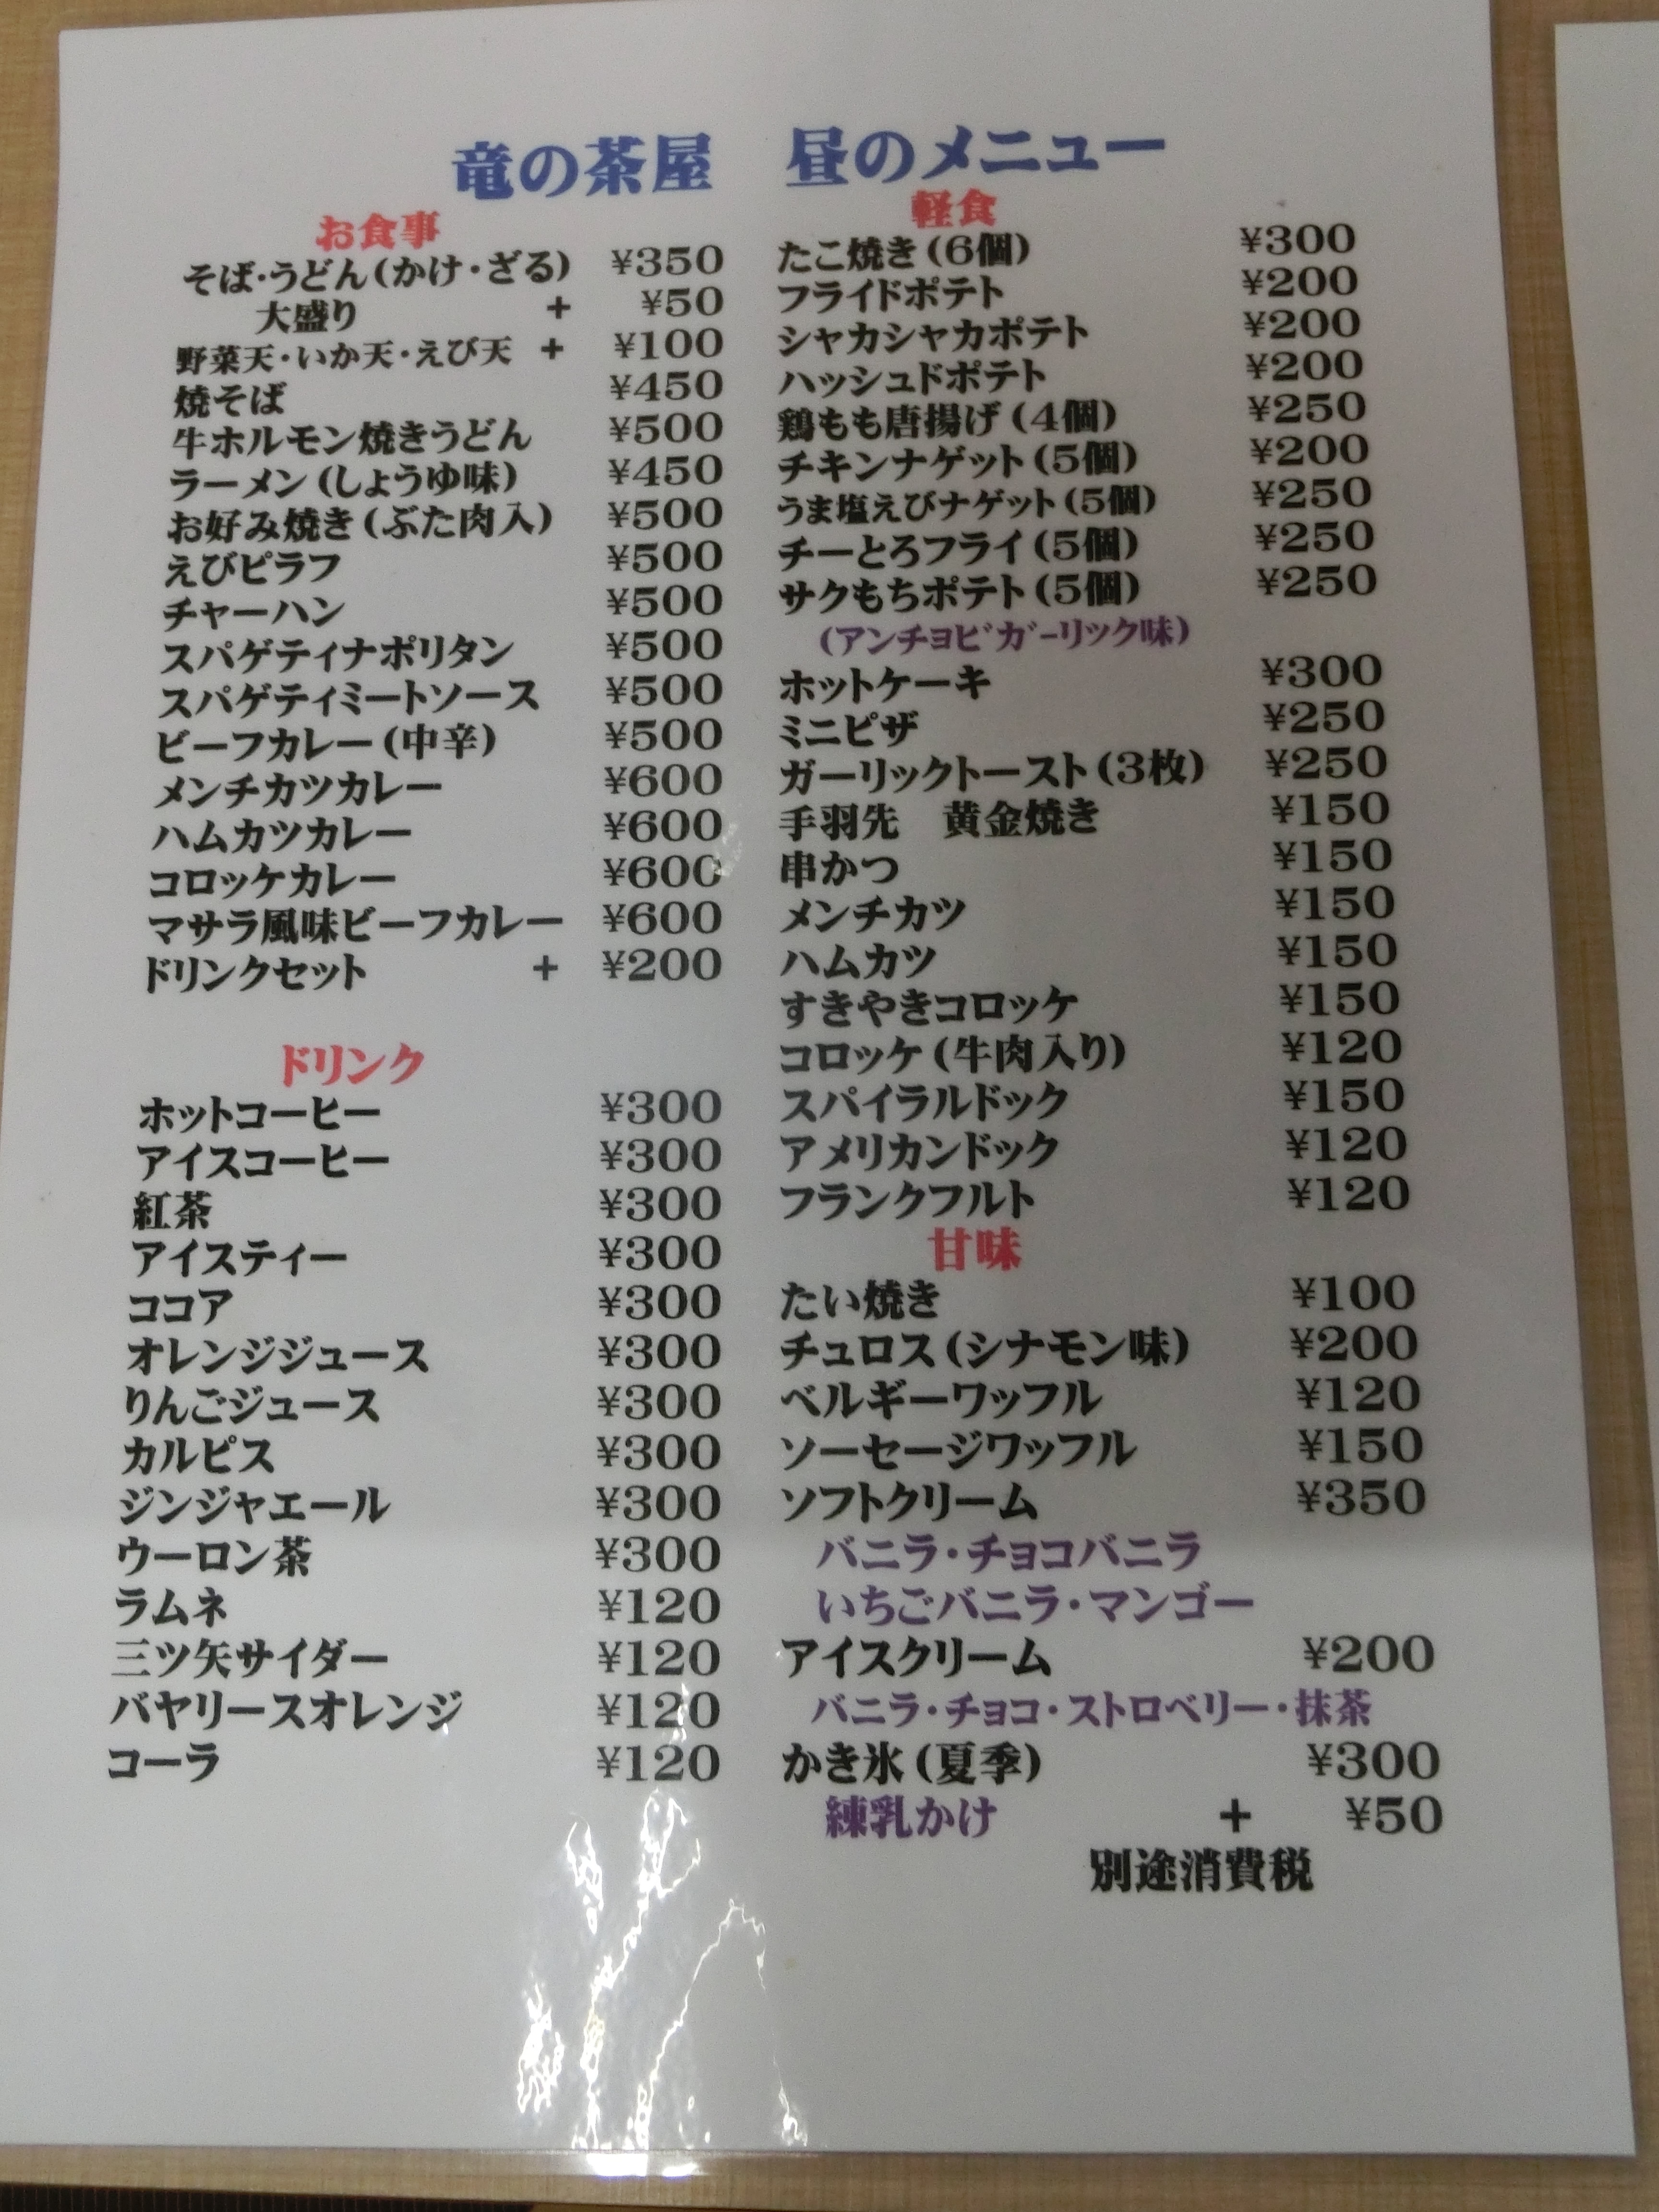 竜の茶屋　昼のメニュー
お食事
そば・うどん(かけ・ざる) ¥350
大盛り + ¥50
野菜天・いか天・えび天 + ¥100
焼そば ¥450
牛ホルモン焼きうどん ¥500
ラーメン(しょうゆ味) ¥450
お好み焼き(ぶた肉入) ¥500
えびピラフ ¥500
チャーハン ¥500
スパゲティナポリタン ¥500
スパゲティミートソース ¥500
ビーフカレー(中辛) ¥500
メンチカツカレー ¥600
ハムカツカレー ¥600
コロッケカレー ¥600
マサラ風味ビーフカレー ¥600
ドリンクセット + ¥200
ドリンク
ホットコーヒー ¥300
アイスコーヒー ¥300
紅茶 ¥300
アイスティー ¥300
ココア ¥300
オレンジジュース ¥300
りんごジュース ¥300
カルピス ¥300
ジンジャエール ¥300
ウーロン茶 ¥300
ラムネ ¥120
三ツ矢サイダー ¥120
バヤリースオレンジ ¥120
コーラ ¥120
軽食
たこ焼き(6個) ¥300
フライドポテト ¥200
シャカシャカポテト ¥200
ハッシュドポテト ¥200
鶏もも唐揚げ(4個) ¥250
チキンナゲット(5個) ¥200
うま塩えびナゲット(5個) ¥250
チーとろフライ(5個) ¥250
サクもちポテト(5個) ¥250
(アンチョビガーリック味)
ホットケーキ ¥300
ミニピザ ¥250
ガーリックトースト(3枚) ¥250
手羽先　黄金焼き ¥150
串かつ ¥150
メンチカツ ¥150
ハムカツ ¥150
すきやきコロッケ ¥150
コロッケ(牛肉入り) ¥120
スパイラルドック ¥150
アメリカンドック ¥120
フランクフルト ¥120
甘味
たい焼き ¥100
チュロス(シナモン味) ¥200
ベルギーワッフル ¥120
ソーセージワッフル ¥150
ソフトクリーム ¥350
バニラ・チョコバニラ
いちごバニラ・マンゴー
アイスクリーム ¥200
バニラ・チョコ・ストロベリー・抹茶
かき氷(夏季) ¥300
練乳かけ + ¥50
別途消費税